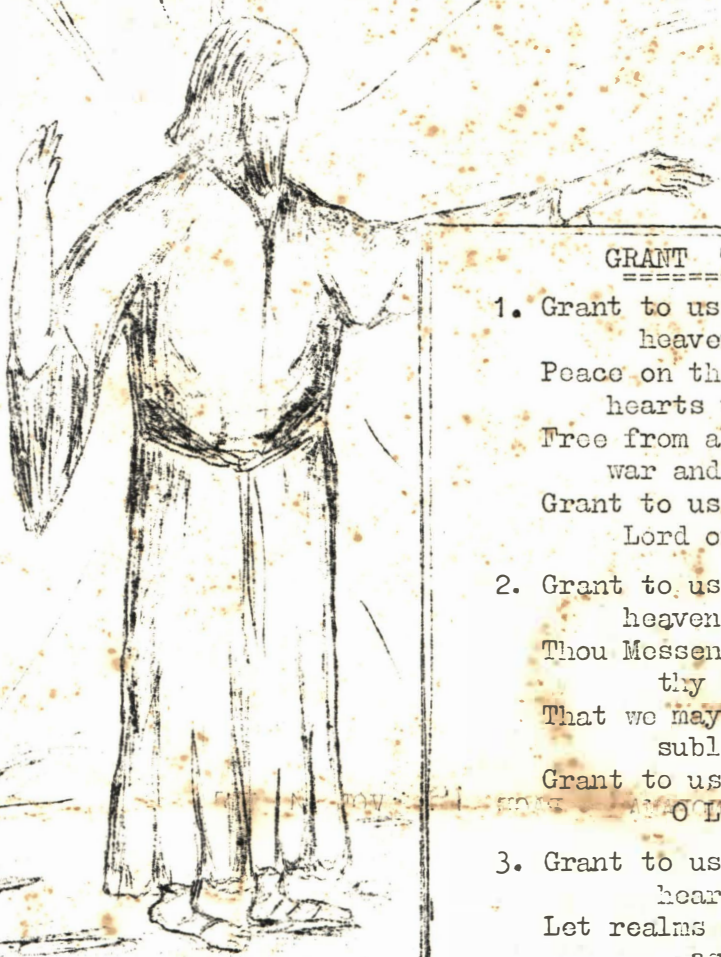 GRANT
======
1. Grant to us
heave
Peace on th
hearts
Free from a
war and
Grant to us
Lord o
2. Grant to us
heaven
Thou Messen
thy
That we may
subl
Grant to us
O L
3. Grant to us
hear
Let realms